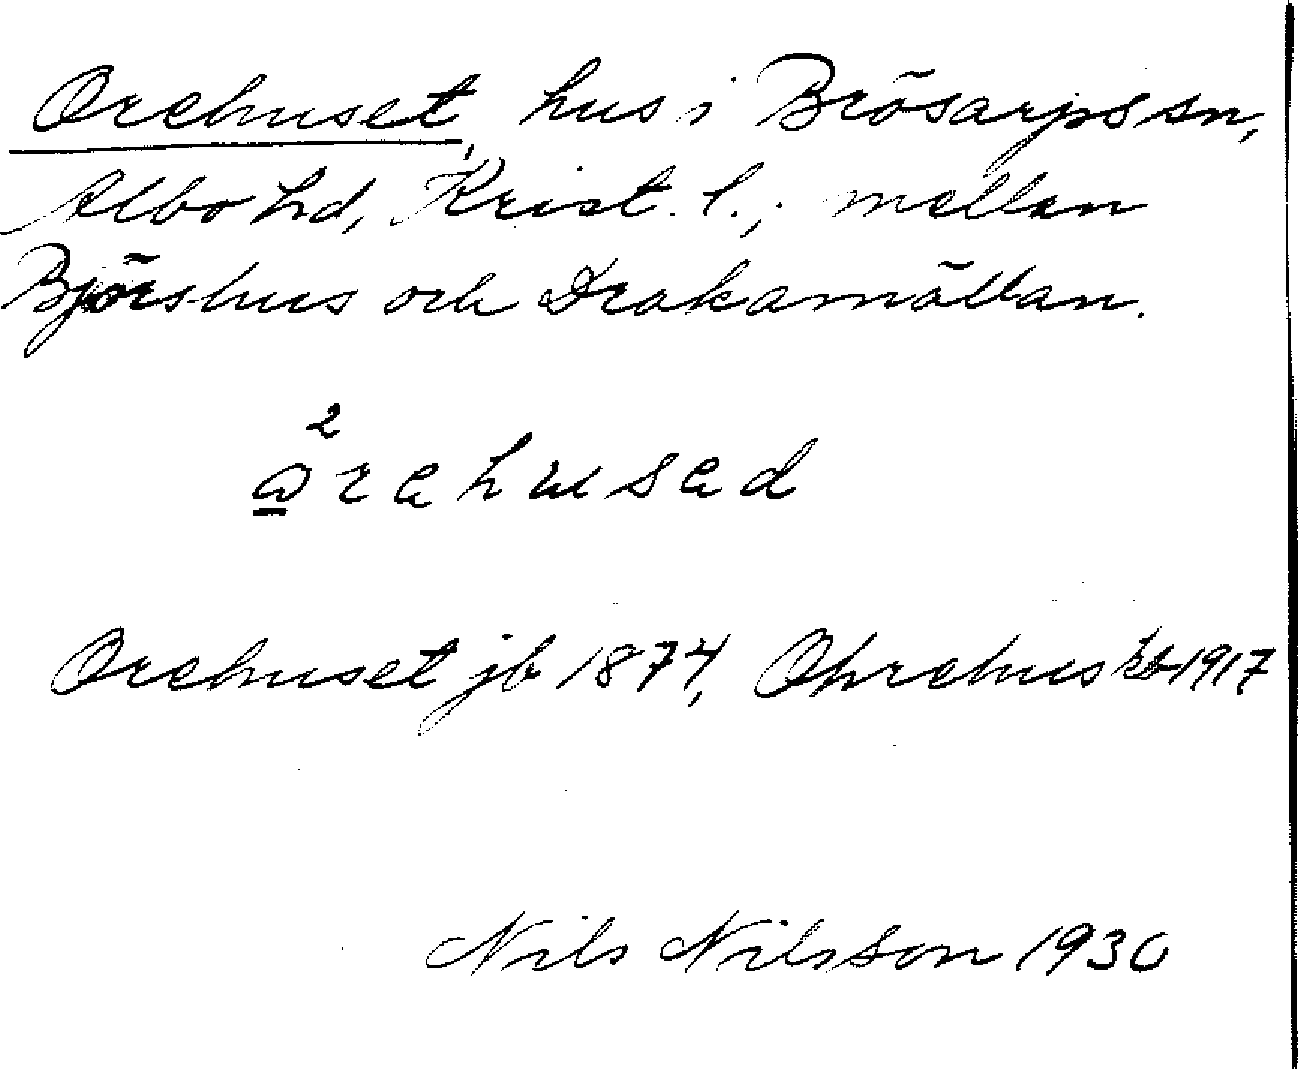 Orehuset, hus i Brösarps sn,
Albo hd, Krist. l., mellan
Björshus och Drakamöllan.
2
a̲rahusad
Orehuset jb 1874, Ohrehus kb 1917
Nils Nilsson 1930